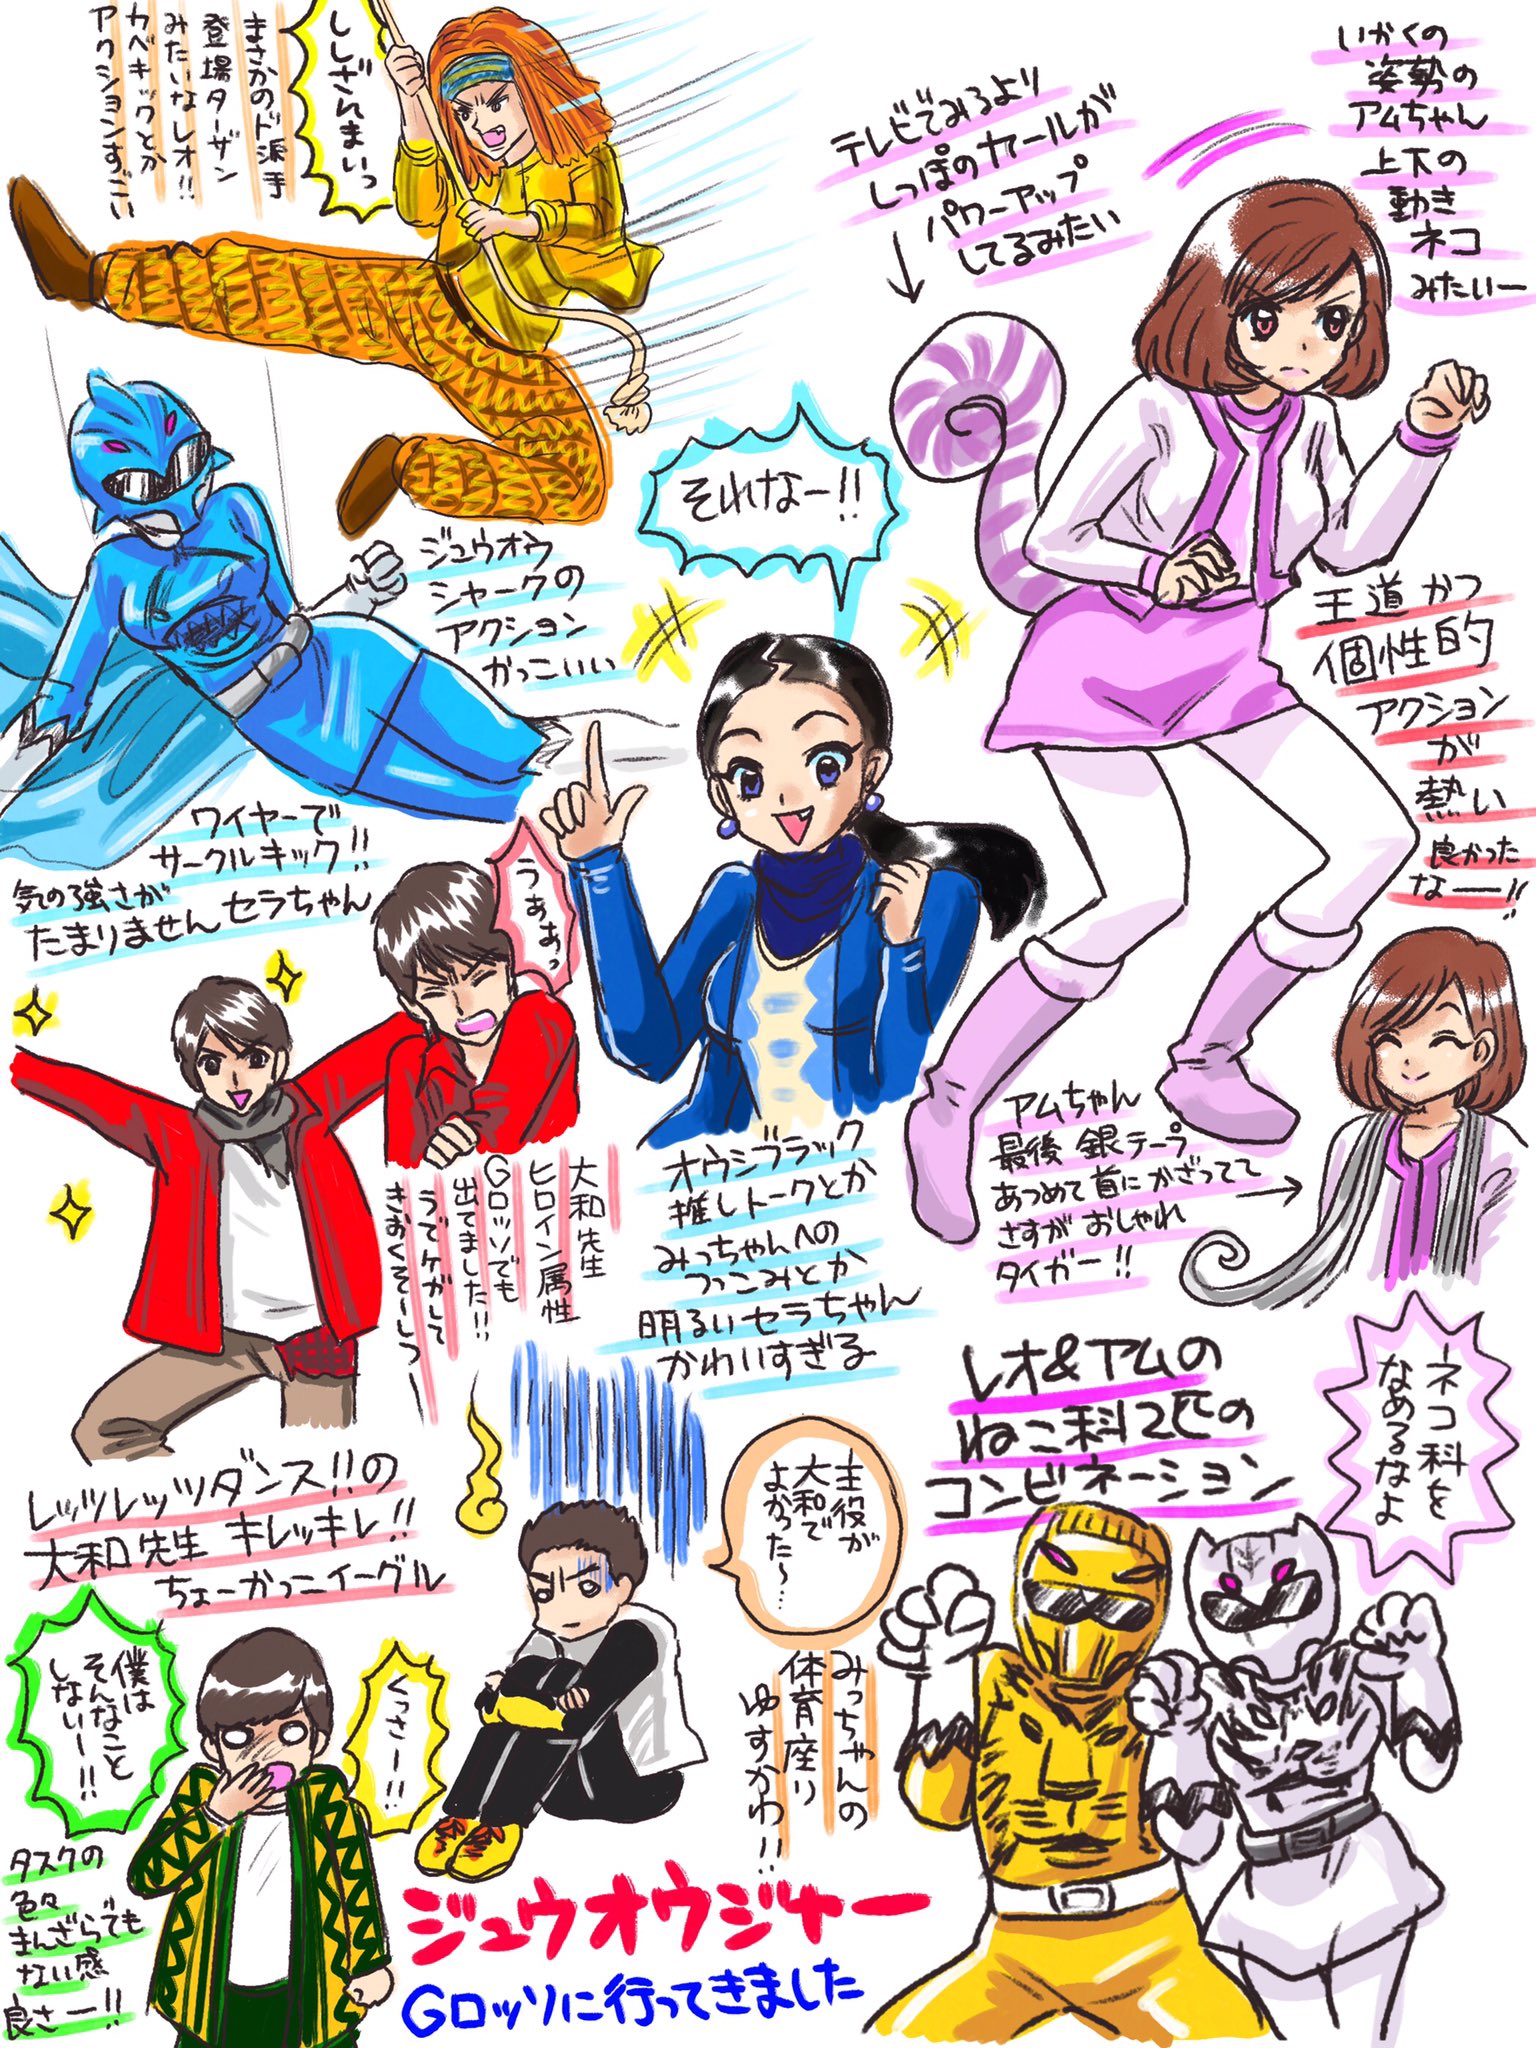 ししざんまいっ
まさかのド派手
登場ターザン
みたいなレオ!!
カベキックとか
アクションすごい
テレビでみるより
しっぽのカールが
パワーアップ
してるみたい
いかくの
姿勢の
アムちゃん
上下の
動き
ネコ
みたいー
それなー!!
ジュウオウ
シャークの
アクション
かっこいい
ワイヤーで
サークルキック!!
気の強さが
たまりませんセラちゃん
王道かつ
個性的
アクション
が
熱い
良かった
なー!!
うぁぁっ
大和先生
ヒロイン属性
Gロッソでも
出てました!!
うでケガして
きおくそーしつー
オウシブラック
推しトークとか
みっちゃんへの
つっこみとか
明るいセラちゃん
かわいすぎる
アムちゃん
最後銀テープ
あつめて首にかざってて
さすがおしゃれ
タイガー!!
レッツレッツダンス!!の
大和先生キレッキレ!!
ちょーかっこイーグル
主役が
大和で
よかった〜…
みっちゃんの
体育座り
ゆずかわ!!
レオ&アムの
ねこ科2匹の
コンビネーション
ネコ科を
なめるなよ
僕は
そんなこと
しないー!!
くっさー!!
タスクの
色々
まんざらでも
ない感
良さー!!
ジュウオウジャー
Gロッソに行ってきました